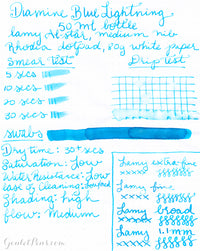 Diamine Blue Lightning
50 ml bottle
Lamy Al-Star, medium nib
Rhodia dotpad, 80g white paper
Smear test
Drip test
5 secs
10 secs
20 secs
30 secs
swabs
Dry time: 30+ secs
Saturation: Low
Water Resistance: Low
Ease of Cleaning:
Shading: high
Flow: Medium
Lamy extra-fine
Lamy fine
Lamy broad
Lamy 1.1mm
GouletPens.com